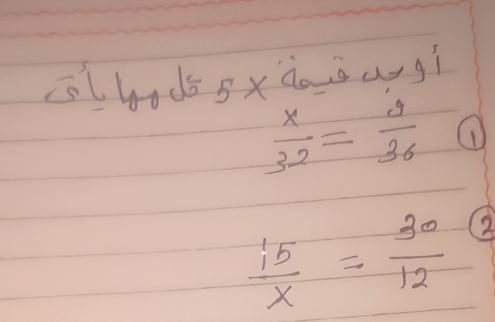 أوجد قيمة x 5 كل مما يأتى
① x/32 = 9/36
② 15/x = 30/12